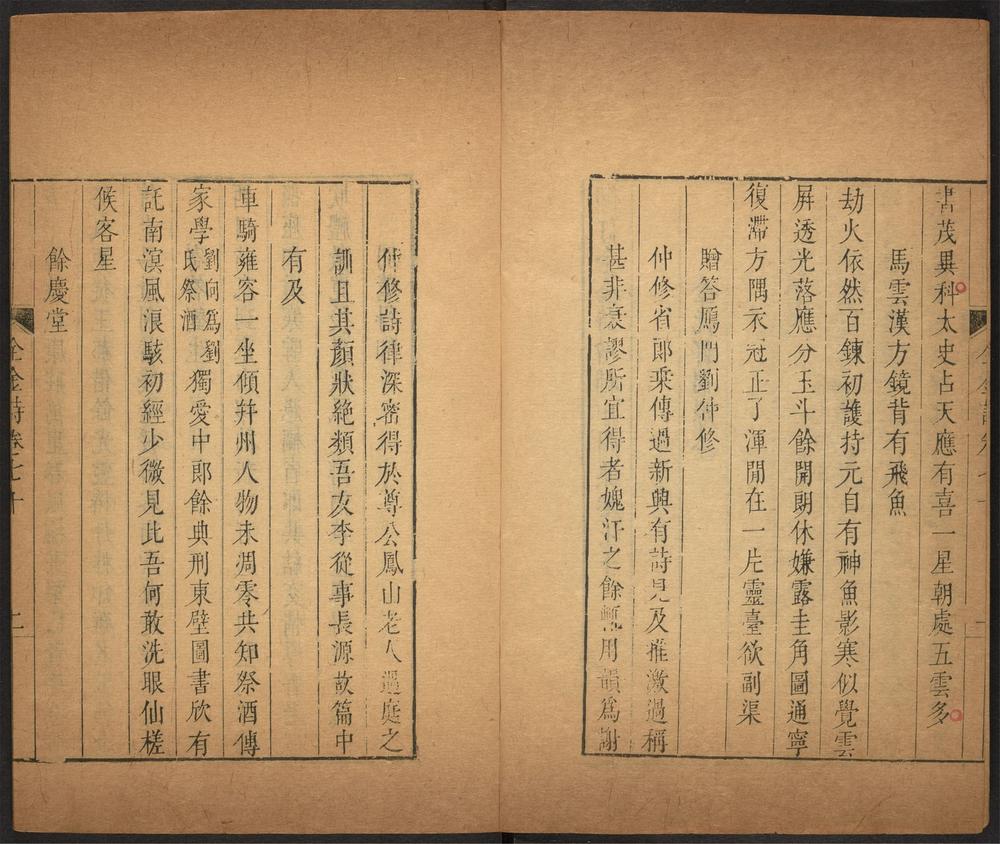 書茂異科太史占天應有喜一星朝處五雲多
馬雲漢方鏡背有飛魚
劫火依然百鍊初護持元自有神魚影寒似覺雲
屛透光落應分玉斗餘開朗休嫌露圭角圖通寧
復滯方隅衣冠正了渾閒在一片靈臺欲副渠
贈答鴈門劉仲修
仲修省郎乘傳過新興有詩見及推激過稱
甚非衰謬所宜得者媿汗之餘輒用韻爲謝
仲修詩律深密得於尊公鳳山老人過庭之
訓且其顏狀絶類吾友李從事長源故篇中
有及
車騎雍容一坐傾幷州人物未凋零共知祭酒傳
家學劉向爲劉氏祭酒獨愛中郎餘典刑東壁圖書欣有
託南溟風浪駭初經少微見此吾何敢洗眼仙槎
候客星
餘慶堂
全金詩卷七十
二